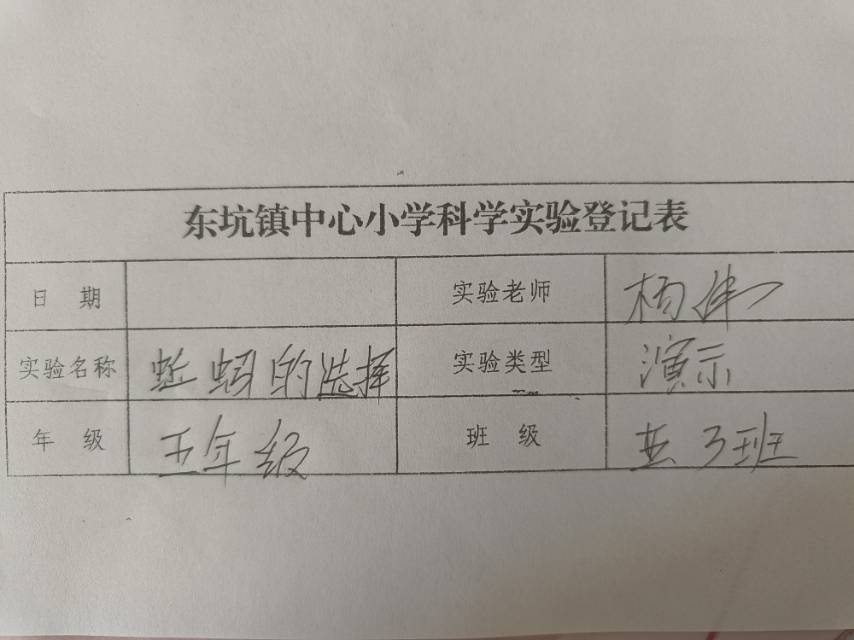 东坑镇中心小学科学实验登记表
日 期 实验老师 杨伟
实验名称 蚯蚓的选择 实验类型 演示
年 级 五年级 班 级 3班